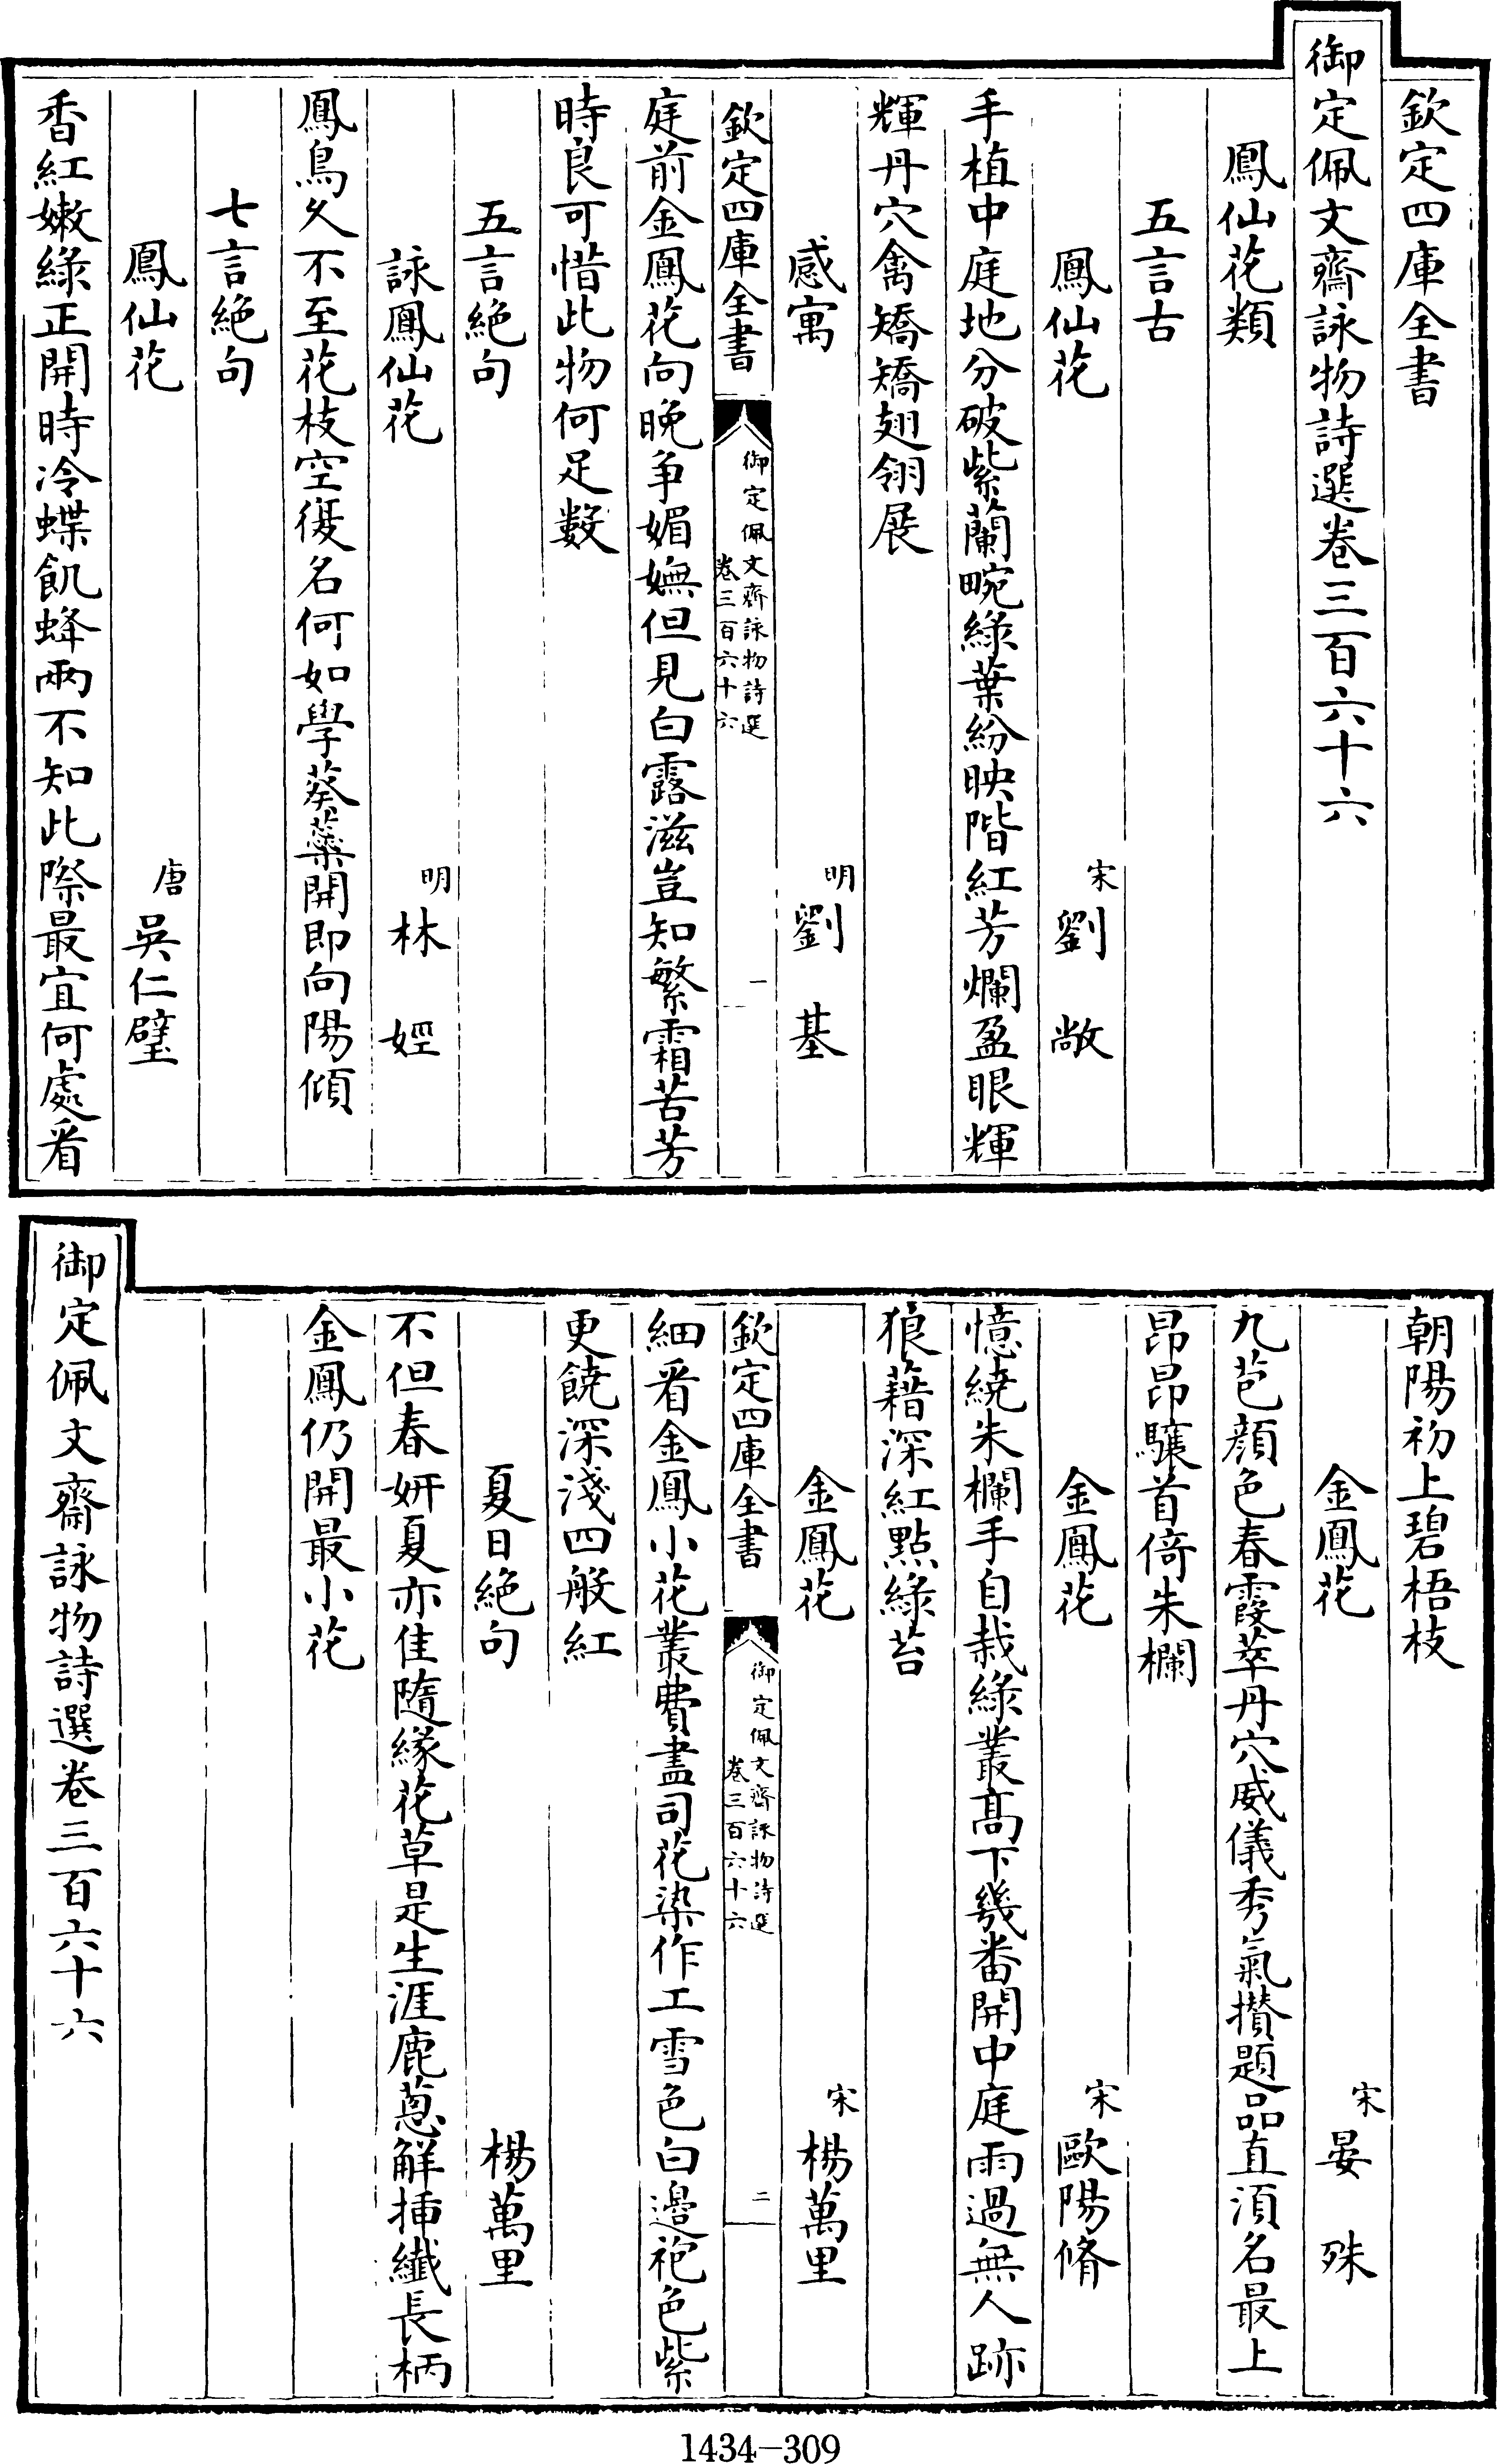 欽定四庫全書
御定佩文齋詠物詩選卷三百六十六
鳳仙花類
五言古
鳳仙花　宋劉　敞
手植中庭地分破紫蘭畹綠葉紛映階紅芳爛盈眼輝
輝丹穴禽矯矯翅翎展
感寓　明劉　基
欽定四庫全書
御定佩文齋詠物詩選
卷三百六十六
一
庭前金鳳花向晚爭媚嫵但見白露滋豈知繁霜苦芳
時良可惜此物何足數
五言絕句
詠鳳仙花　明林　娙
鳳鳥久不至花枝空復名何如學葵藥開即向陽傾
七言絕句
鳳仙花　唐吳仁璧
香紅嫩綠正開時冷蝶飢蜂兩不知此際最宜何處看
朝陽初上碧梧枝
金鳳花　宋晏　殊
九苞顔色春霞萃丹穴威儀秀氣攢題品直須名最上
昂昂驤首倚朱欄
金鳳花　宋歐陽脩
憶繞朱欄手自栽綠叢髙下幾番開中庭雨過無人跡
狼藉深紅點綠苔
金鳳花　宋楊萬里
欽定四庫全書
御定佩文齋詠物詩選
卷三百六十六
二
細看金鳳小花叢費盡司花染作工雪色白邊袍色紫
更饒深淺四般紅
夏日絕句　楊萬里
不但春妍夏亦佳隨緣花草是生涯鹿蔥解揷纖長柄
金鳳仍開最小花
御定佩文齋詠物詩選卷三百六十六
1434-309